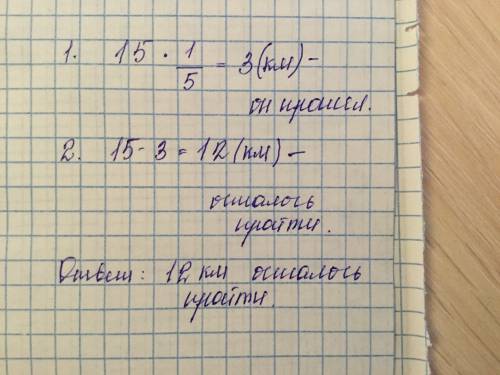 1. 15 · 1/5 = 3 (км) –
он прошёл.
2. 15 - 3 = 12 (км) –
осталось
пройти.
Ответ: 12 км осталось
пройти.